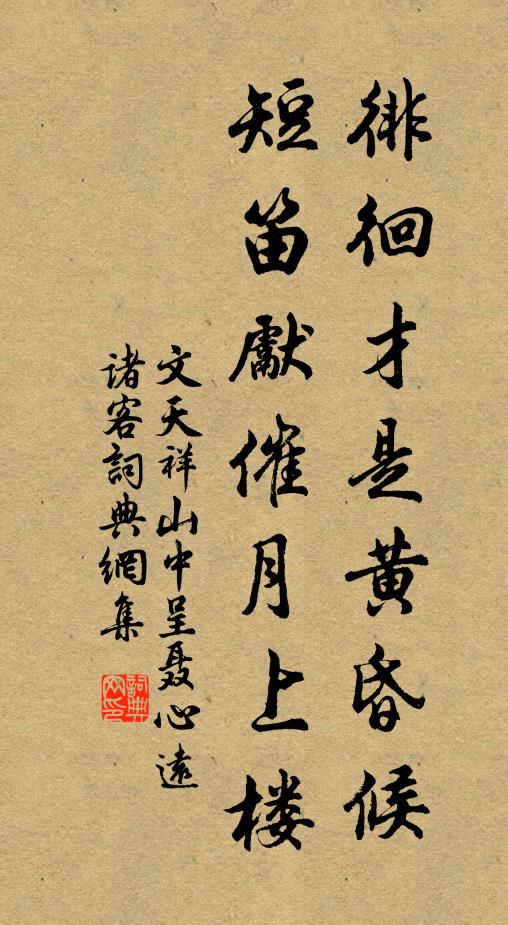 徘徊才是黄昏候
短笛獻催月上楼
文天祥山中呈聂心遠
诸客詞典網集
詞典网印